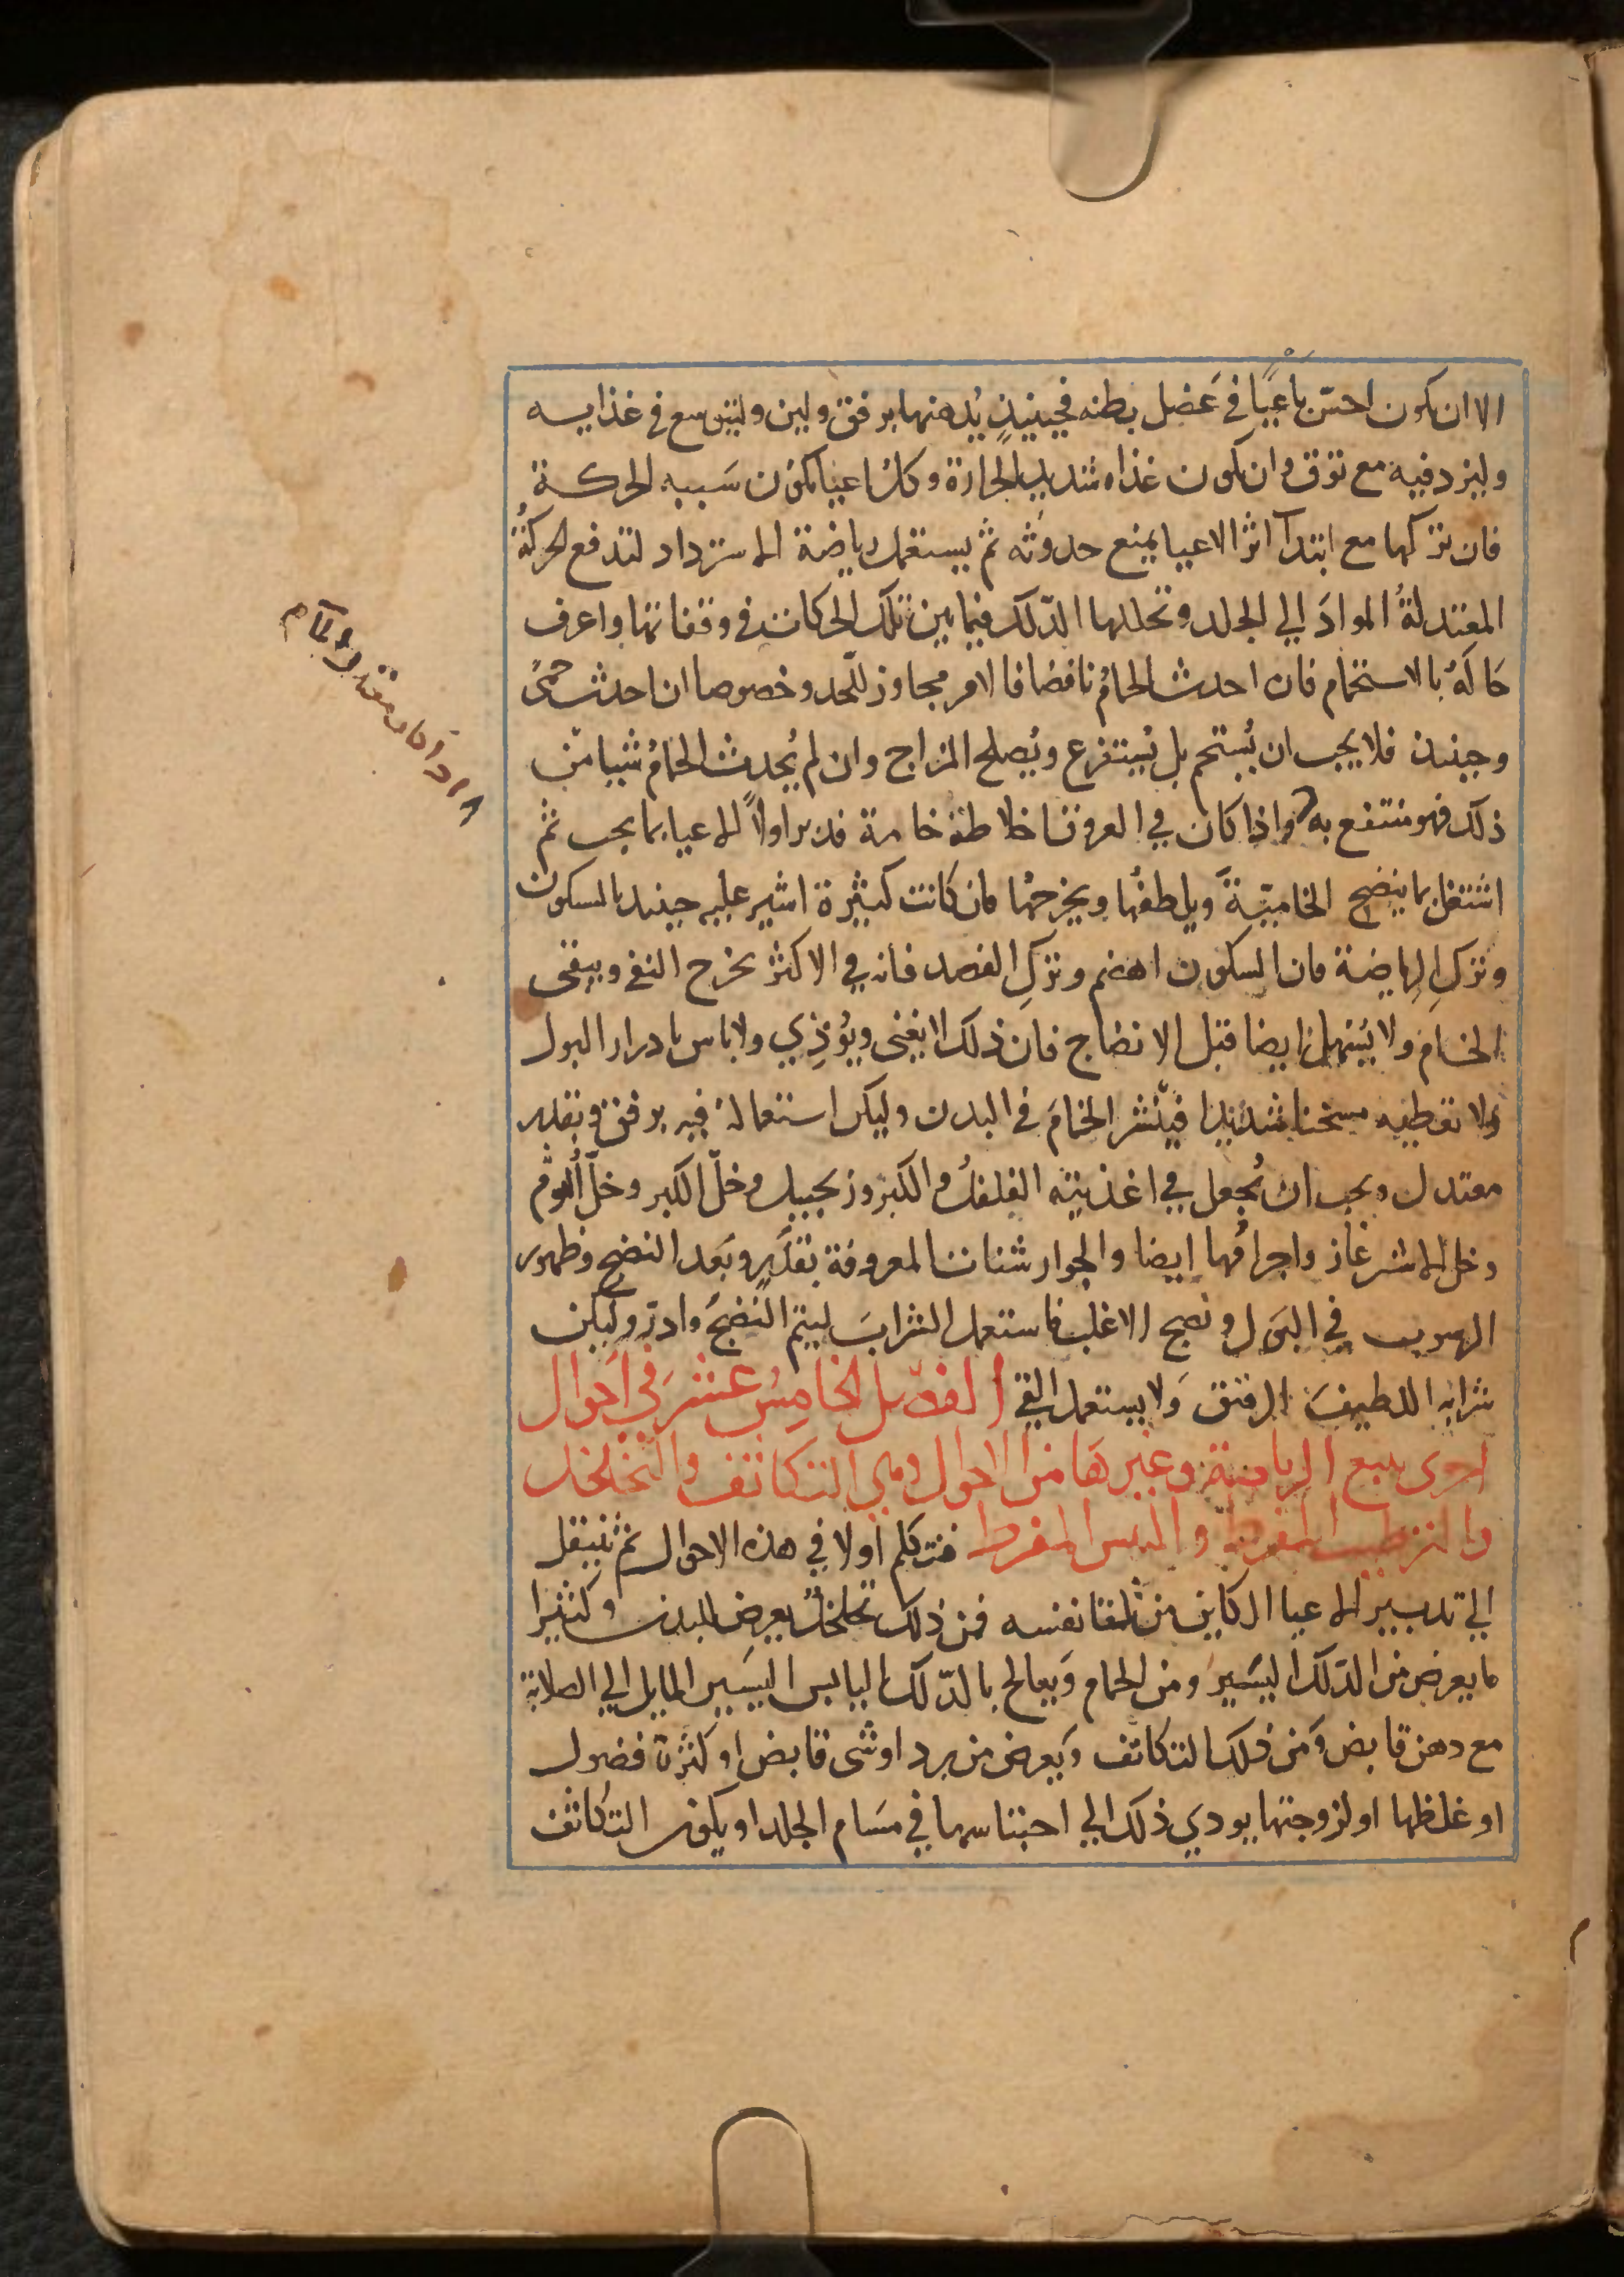 الا ان يكون احسّ باعيًا في عَضل بطنه فحينيذٍ يُدهنها برفق ولين وليتوسع في غذايه
وليزد فيه مع توق وان يكون غذاه شديد الحرارة وكل اعيا يكون سَببه الحركة
فان تركها مع ابتدآ اثر الاعيا يمنع حدوثه ثم يستعمل رياضة الاسترداد لتدفع الحركةُ
المعتدلةُ الموادَ الي الجلد وتحللها الدّلك فيما بين تلك الحركات في وقفاتها واعرف
حَالَهُ بالاستحمام فان احدث الحمامُ نافضا فالامر مجاوز للحد وخصوصا ان احدث حُمّى
وحينيذ فلا يجب ان يُستحم بل يُستفرغ ويُصلح المزاج وان لم يُحدث الحمامُ شيا من
ذلك فهو منتفع به واذا كان في العروق اخلاطه خامة فدبر اولاً الاعيا بما يجب ثم
اشتغل بما ينضج الخاميّةَ ويلطفُها ويخرجُها فان كانت كثيرة اشير عليه حينيذ بالسكون
وتركِ الرياضة فان السكون اهضم وتركِ الفصد فانه في الاكثر يخرج النقي ويبقى
الخام ولا يُسهل ايضا قبل الانضاج فان ذلك لا يغنى ويُوذِي ولا باس بادرار البول
ولا تعطيه مسخنا شديدًا فينّشر الخامَ في البدن وليكن استعماله فيه برفق وبقدر
معتدل ويجب ان يُجعل في اغذيته الفلفلُ والكبر وزنجبيل وخلّ الكبر وخلّ الثوم
وخل الاشترغاز واجرامُها ايضا والجوارشنات المعروفة بقدَرٍ وبَعد النضج وظهور
الرسوب في البَول ونضج الاغلب فاستعمل الشرابَ ليتم النُضجُ وادرّ وليكن
شرابه اللطيفَ الرقيق وَلا يستعمل القي الفصل الخامِسُ عشرَ في احَوال
اخرى يتبع الرياضة وغيرهَا من الاحوال وهي التكاثف والتخلخل
والترطيب المفرط واليبس المفرط فنتكلم اولا في هذه الاحوال ثم ننتقل
الي تدبير الاعيا الكاين من تلقا نفسه فمن ذلك تخلخلٌ يعرض للبدن وكثيرا
ما يعرض من الدّلك اليَسيرُ ومن الحمام وَيعالج بالدّلك اليابس اليسَير المايل الي الصلابة
مع دهن قابض وَمن ذلك التكاثف وَيعرض من برد او شى قابض او كثرة فضول
او غلظها او لزوجتها يودي ذلك الي احتباسها في مسَام الجلد او يكون التكاثف